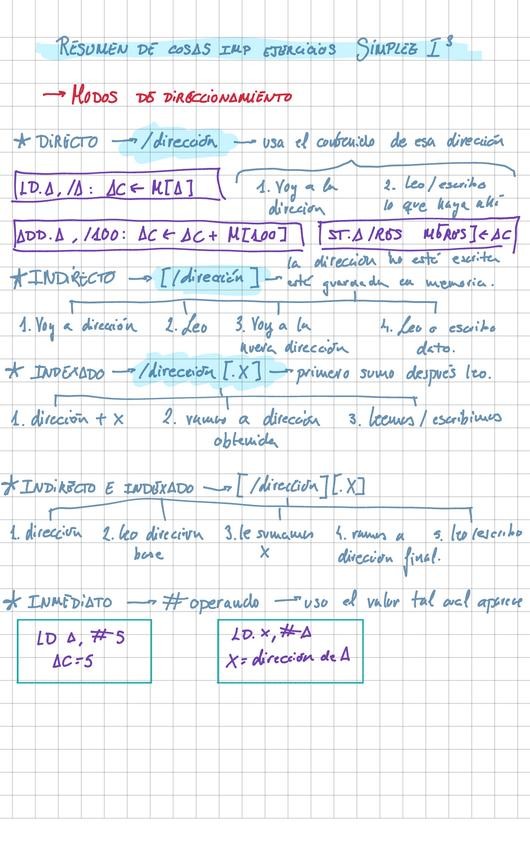 RESUMEN DE COSAS IMP EJERCICIOS SIMPLEZ I³
→ MODOS DE DIRECCIONAMIENTO
* DIRECTO → /dirección → usa el contenido de esa dirección
LD.A, /A: AC ← M[A]
1. Voy a la dirección
2. Leo/escribo lo que haya ahí
ADD.A, /100: AC ← AC + M[100]
ST.A /RES M[RES] ← AC
* INDIRECTO → [/dirección] → la dirección no está escrita
está guardada en memoria.
1. Voy a dirección 2. Leo 3. Voy a la 4. Leo o escribo
nueva dirección dato.
* INDEXADO → /dirección [.X] → primero sumo después leo.
1. dirección + X 2. vamos a dirección 3. leemos/escribimos
obtenida
* INDIRECTO E INDEXADO → [/dirección][.X]
1. dirección 2. leo dirección 3. le sumamos 4. vamos a 5. leo/escribo
base X dirección final.
* INMEDIATO → #operando → uso el valor tal cual aparece
LD A, #5
AC=5
LD.X, #A
X= dirección de A